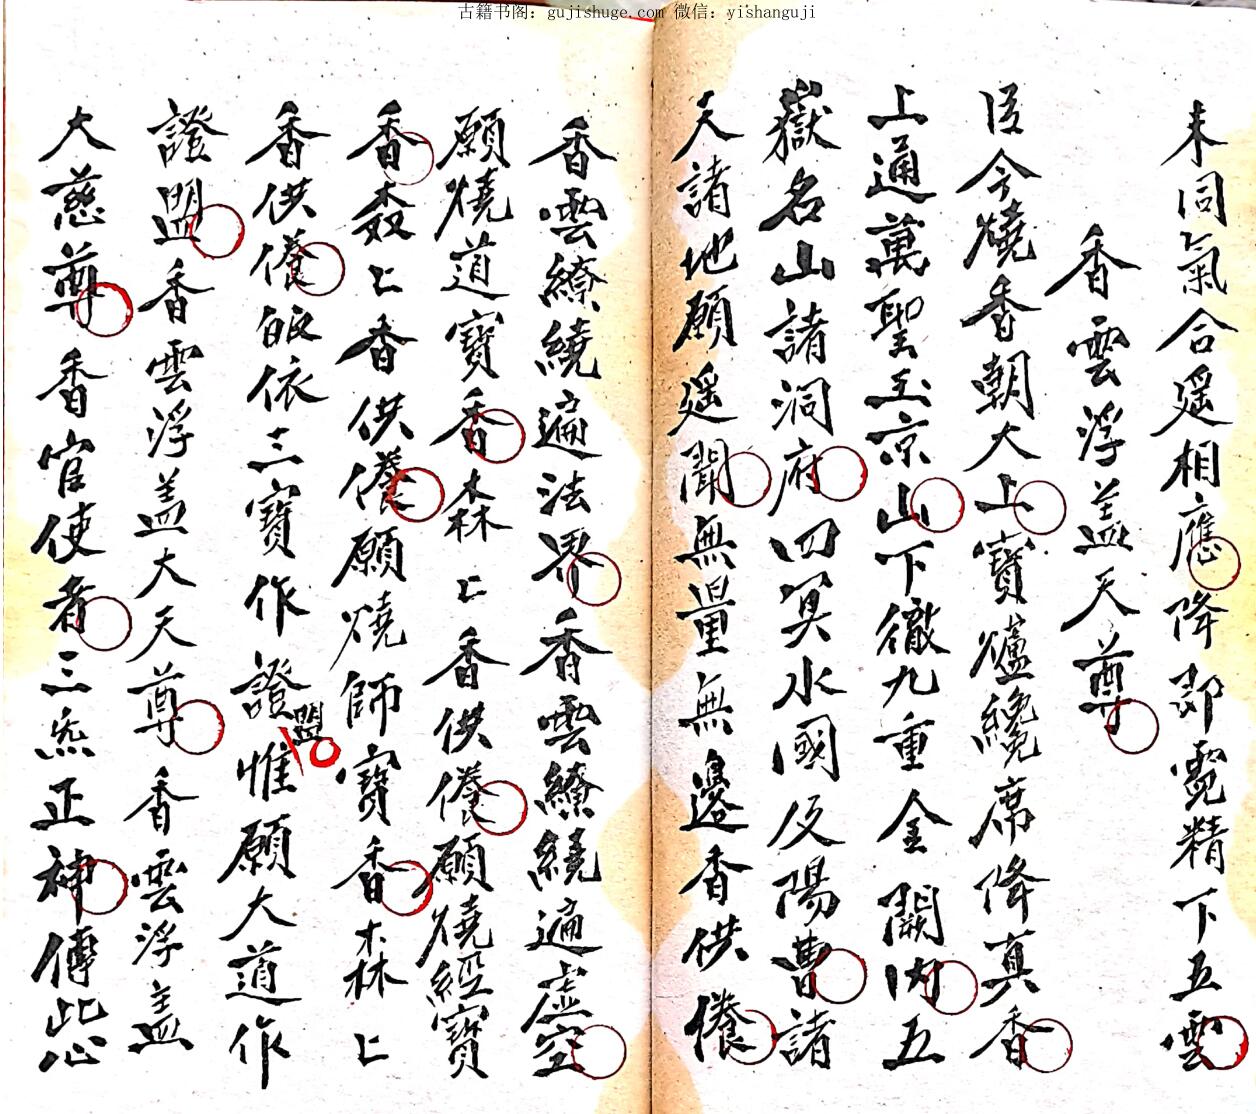 古籍书阁：gujishuge.com 微信：yishanguji
来同氣合遥相應降却霓精下五雲
香雲浮盖天尊
臣今燒香朝大上寶爐纔席降真香
上通萬聖玉京山下徹九重金闕内五
嶽名山諸洞府四冥水國及陽曹諸
天諸地願遥聞無量無邊香供養
香雲繚繞遍法界香雲繚繞遍虚空
願燒道寶香森〻香供養願燒經寶
香森〻香供養願燒師寶香森〻
香供養皈依三寶作證盟惟願大道作
證盟香雲浮盖大天尊香雲浮盖
大慈尊香官使者三炁正神傳此心